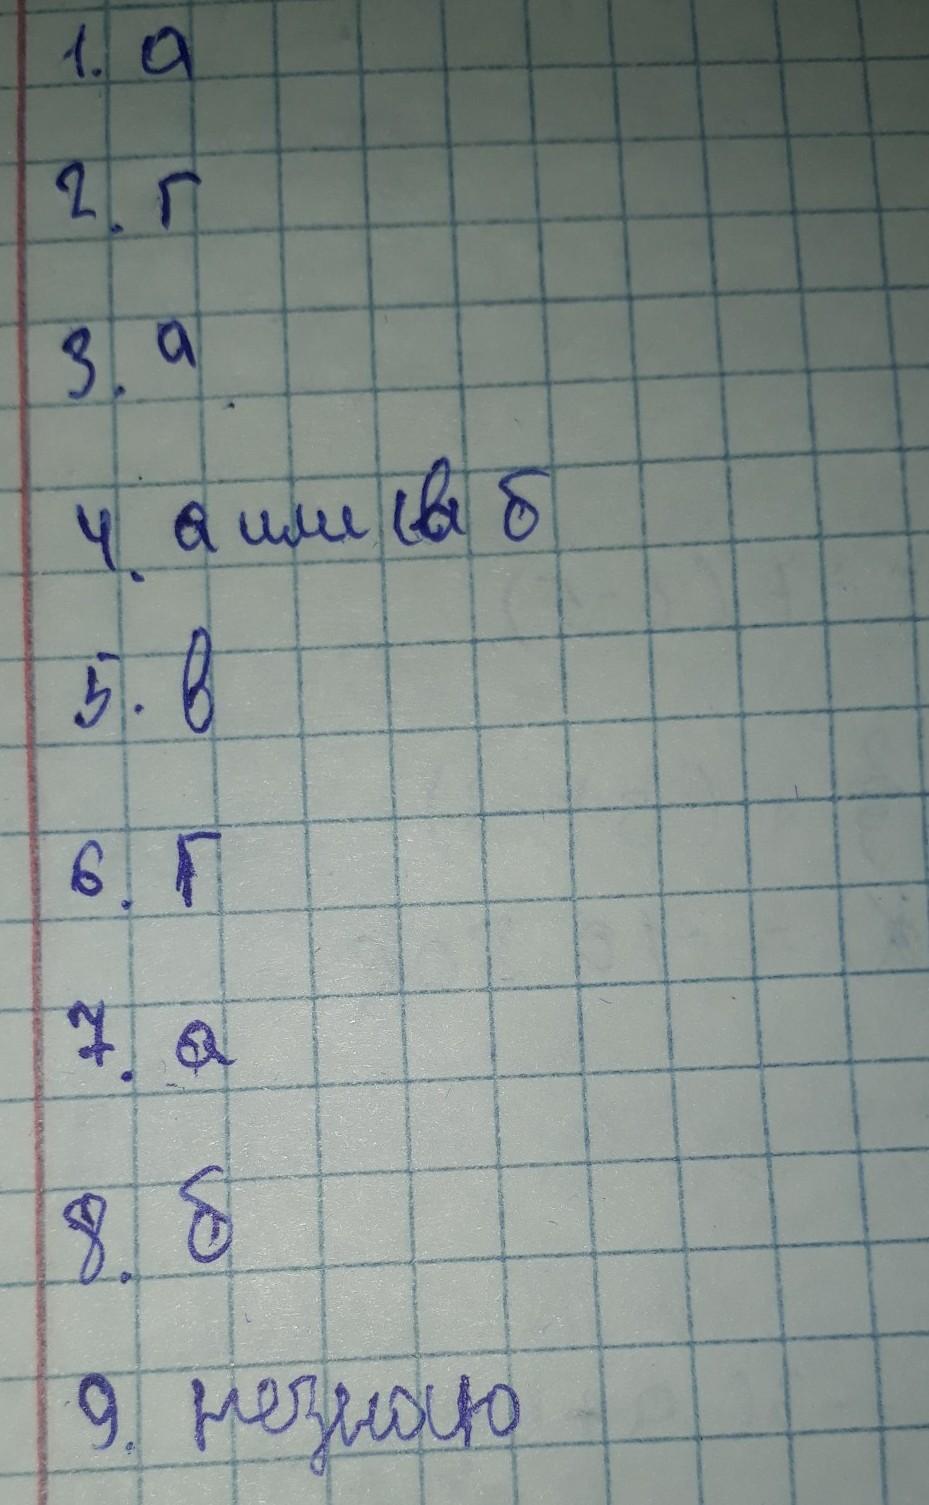 1. а
2. г
3. а
4. а или б
5. в
6. г
7. а
8. б
9. незнаю